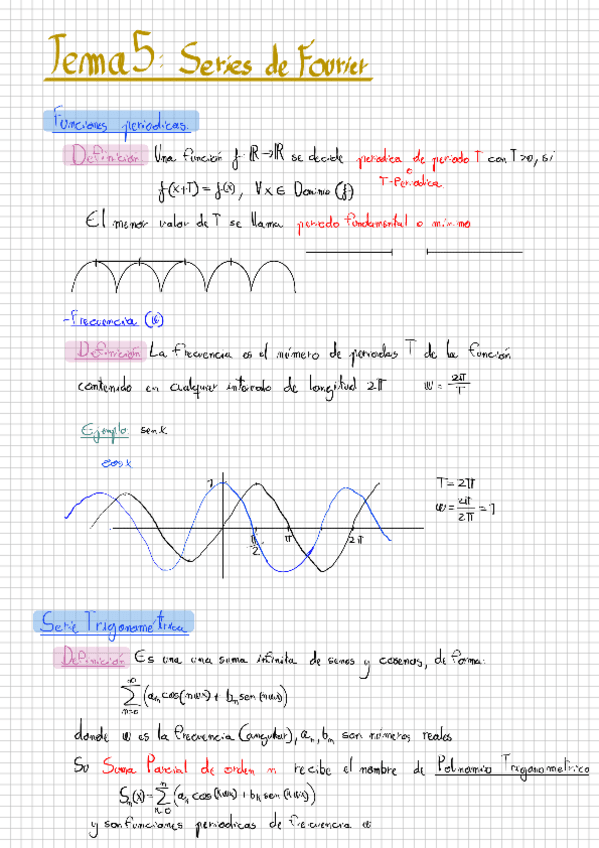 Tema 5: Series de Fourier
Funciones periodicas.
Definición Una función f: ℝ→ℝ se decide periodica de periodo T con T>0, si
o
T-Periodica
f(x+T) = f(x), ∀x ∈ Dominio (f)
El menor valor de T se llama periodo fundamental o mínimo
-Frecuencia (ω)
Definición La frecuencia es el número de periodos T de la función
contenido en cualquier intervalo de longitud 2π ω = 2π/T
Ejemplo: sen x
cos x
1
T = 2π
ω = 2π/2π = 1
π/2 π 2π
Serie Trigonometrica
Definición Es una una suma infinita de senos y cosenos, de forma:
∑_{n=0}^{∞} (aₙ cos(nωx) + bₙ sen(nωx))
donde ω es la frecuencia (angular), aₙ, bₙ son números reales
Su Suma Parcial de orden n recibe el nombre de Polinomio Trigonometrico
Sₙ(x) = ∑_{k=0}^{n} (aₖ cos(kωx) + bₖ sen(kωx))
y son funciones periodicas de frecuencia ω